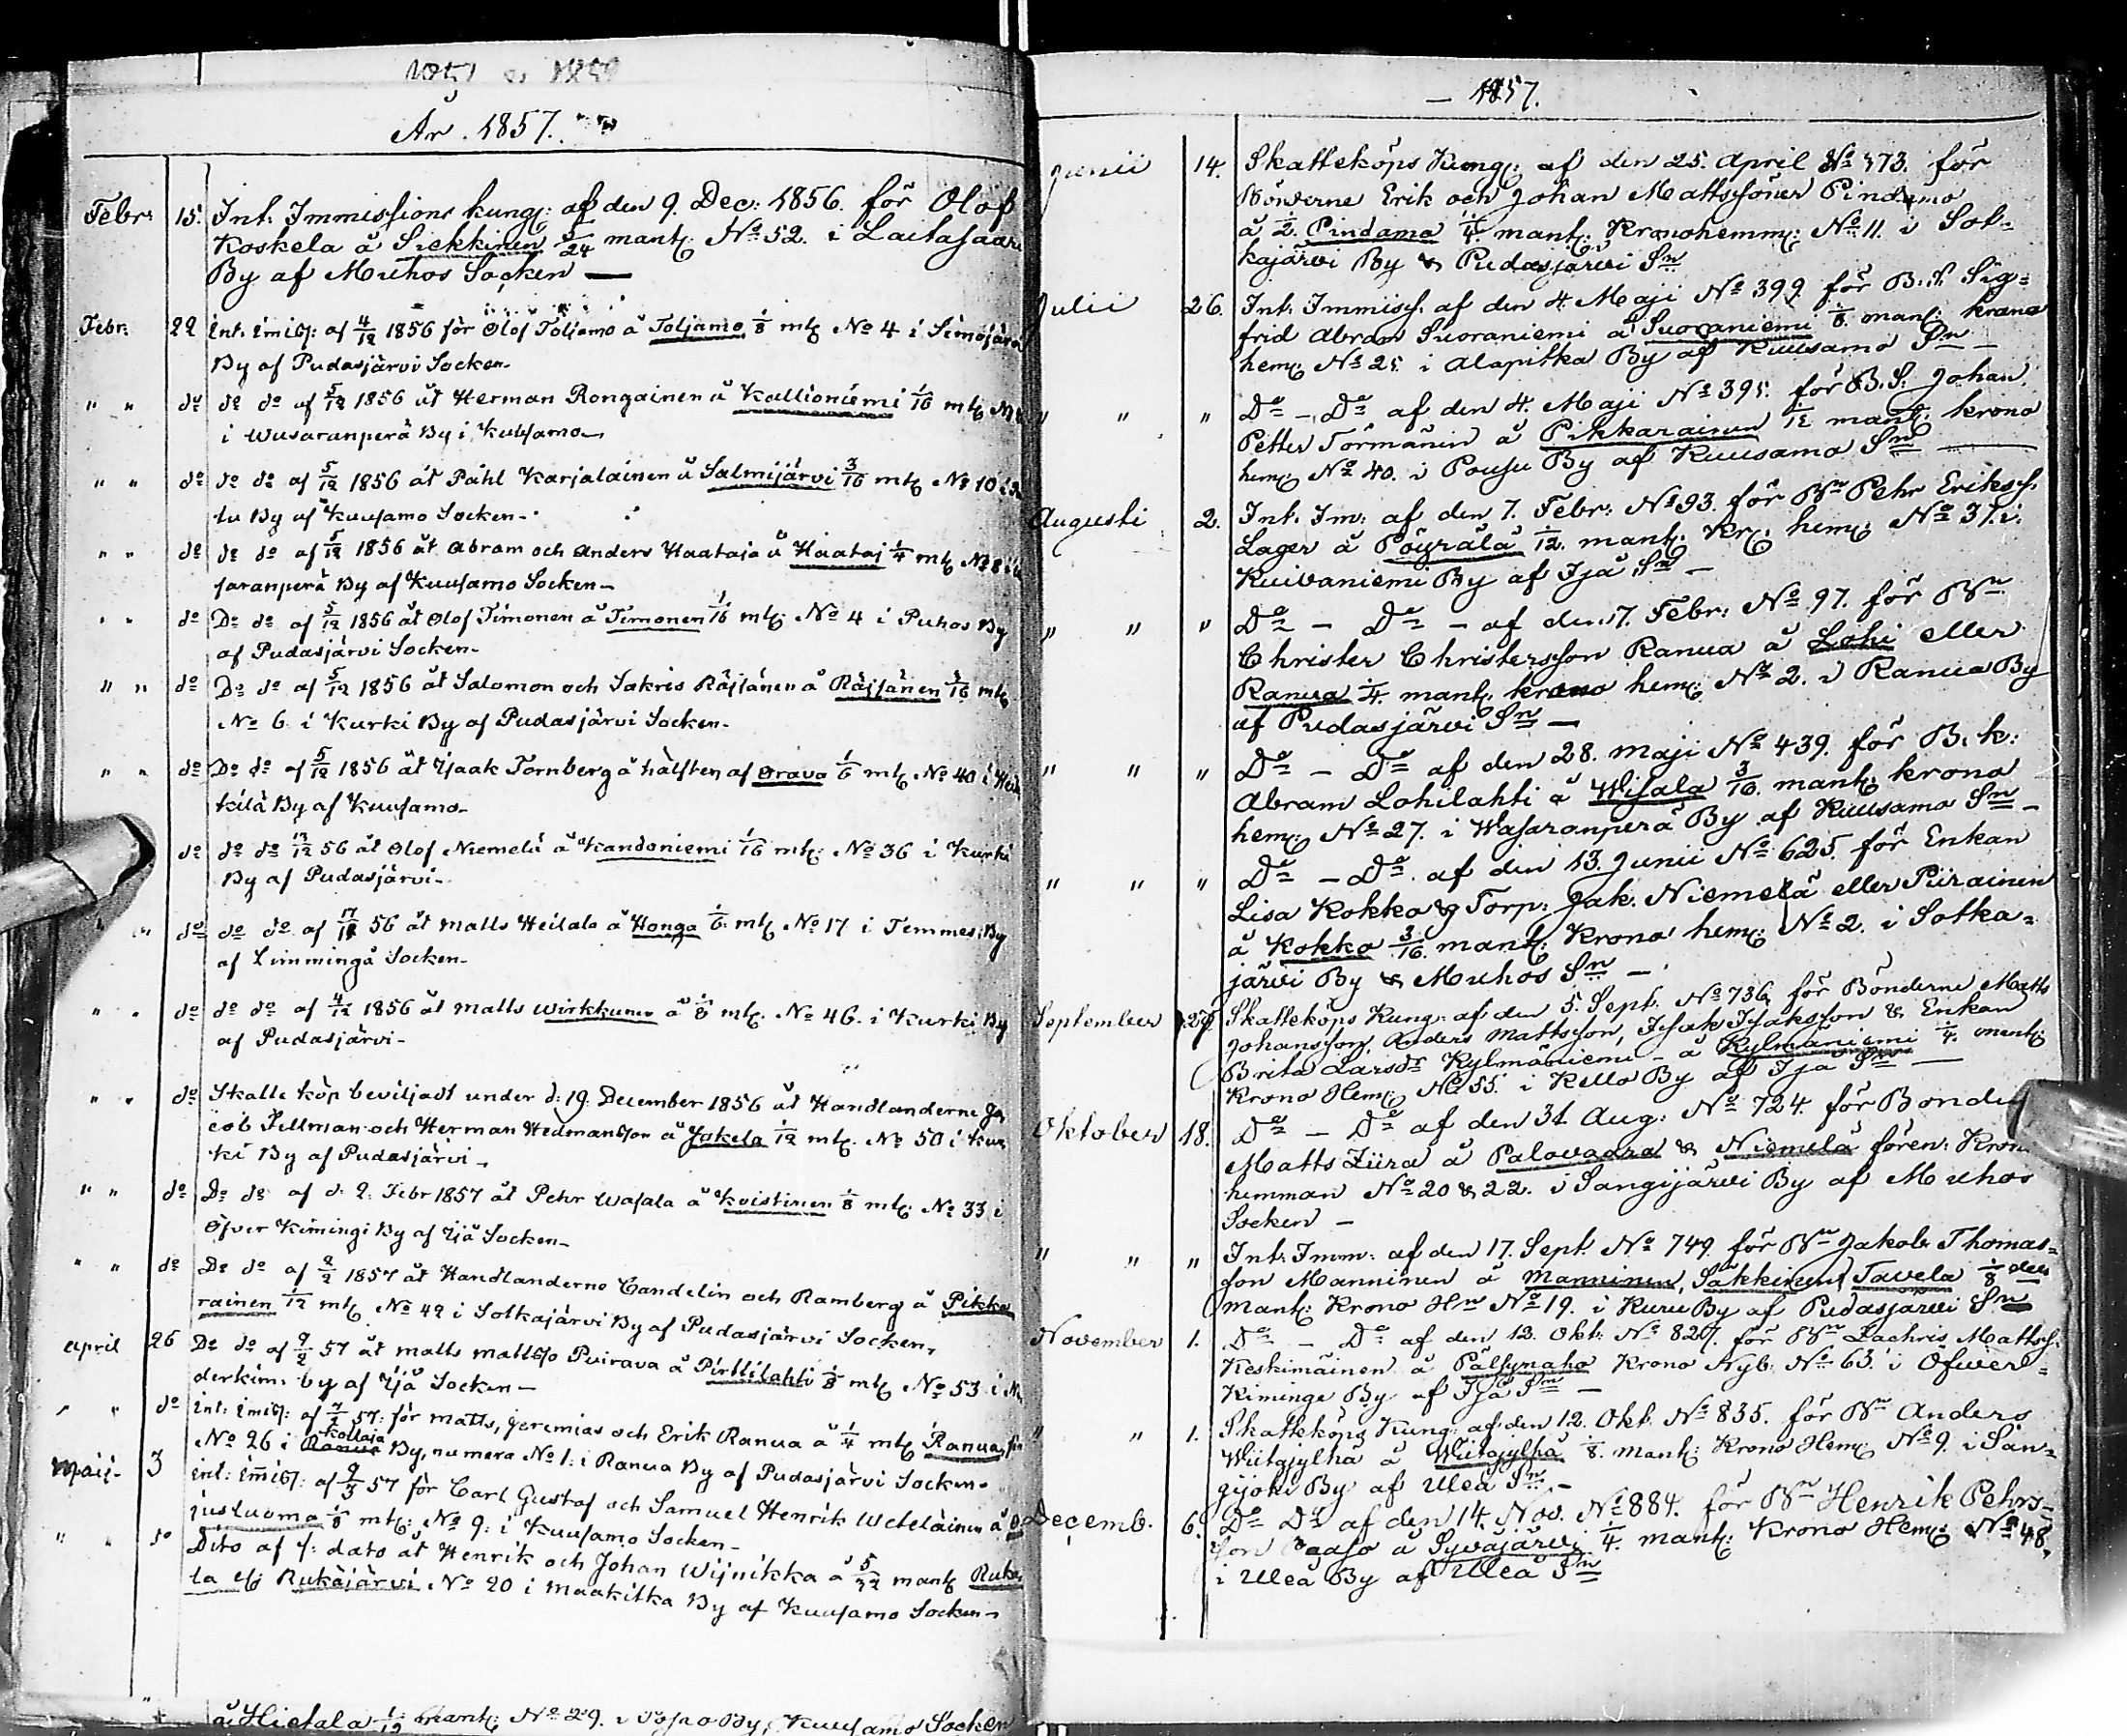 År. 1857.
Febr: 15. Int. Immissions kung: af den 9. Dec: 1856. för Olof
Koskela å Siekkinen 5/24 mant: No 52. i Laitasaari
By af Muhos Socken —
Febr. 22 Int. imiss: af 4/12 1856 för Olof Toljamo å Toljamo 1/8 mtl No 4 i Simojärvi
By af Pudasjärvi Socken-
" " do do do af 5/12 1856 åt Herman Rongainen å Kallioniemi 1/16 mtl
i Wasaranperä By i Kuusamo-
" " do do do af 5/12 1856 åt Påhl Karjalainen å Salmijärvi 3/16 mtl No 10 i
lu By af Kuusamo Socken-
" " do do do af 5/12 1856 åt Abram och Anders Haataja å Haataj 1/4 mtl No 8 i
saranperä By af Kuusamo Socken-
" " do Do do af 5/12 1856 åt Olof Timonen å Timonen 1/16 mtl No 4 i Puhos By
af Pudasjärvi Socken-
" " do Do do af 5/12 1856 åt Salomon och Sakris Räisänen å Räisänen 3/16 mtl
No 6 i Kurki By af Pudasjärvi Socken-
" " do Do do af 5/12 1856 åt Isaak Tornberg å hälften af Orava 1/6 mtl No 40 i
kilä By af Kuusamo-
do do do 13/12 56 åt Olof Niemelä å Kandoniemi 1/16 mtl No 36 i Kurki
By af Pudasjärvi-
" " do do do af 17/11 56 åt Matts Heilala å Honga 1/6 mtl No 17 i Temmes By
af Limmingå Socken-
" " do do do af 4/12 1856 åt Matts Wirkkunen å 1/8 mtl. No 46. i Kurki By
af Pudasjärvi-
" " do Skatte köp beviljadt under d: 19. December 1856 åt Handlanderne Ja
cob Fellman och Herman Hedmansson å Jokela 1/12 mtl. No 50 i Kur
ki By af Pudasjärvi-
" " do Do do af d. 2. Febr 1857 åt Pehr Wasala å Kvistinen 1/8 mtl. No 33 i
Öfver Kimingi By af Ijå Socken-
" " do Do do af 2/2 1857 åt Handlanderne Candelin och Ramberg å Pikka
rainen 1/12 mtl No 42 i Sotkajärvi By af Pudasjärvi Socken,
April 26 Do do af 9/2 57 åt Matts Mattss Puirava å Pirttilahti 1/8 mtl No 53 i
derkim. by af Ijå Socken-
" " do Int: imiss: af 7/2 57: för Matts, Jeremias och Erik Ranua å 1/4 mtl Ranua,
Kollaja
No 26 i Ranua By, numera No 1: i Ranua By af Pudasjärvi Socken-
Maij- 3 int: imiss: af 9/3 57 för Carl Gustaf och Samuel Henrik Weteläinen å
jusluoma 1/8 mtl: No 9: i Kuusamo Socken-
" " Dito af s: dato åt Henrik och Johan Wijnikka å 5/32 mant Ruka
la ell Rukajärvi No 20 i Maakitka By af Kuusamo Socken-
å Hietala 1/12 mant: No 29. i By, Kuusamo Socken
— 1857.
Junii 14. Skatteköps Kung: af den 25. April No 373. för
Bönderne Erik och Johan Mattssöner Pindamo
å 1/2. Pindama 1/4. mant: Kronohemm: No 11. i Sot-
kajärvi By & Pudasjärvi Sn
Julii 26. Int. Immiss. af den 4. Maji No 399. för B.S. Sig=
frid Abram Suoraniemi å Suoraniemi 1/8. mant: krono
hem: No 25 i Alapitka By af Kuusamo Sn —
" " " Do — Do af den 4. Maji No 395. för B.S. Johan
Petter Törmänen å Pikkarainen 1/12 mant: krono
hem: No 40. i Pousu By af Kuusamo Sn —
Augusti 2. Int. Im: af den 7. Febr: No 93. för Bn Pehr Erikss.
Lager å Pöyrälä 1/12. mant. Kr: hem: No 37. i
Kuivaniemi By af Ijå Sn —
" " " Do — Do — af den 7. Febr: No 97. för Bn
Christer Christersson Ranua å Lohi eller
Ranua 1/4. mant. krono hem: No 2. i Ranua By
af Pudasjärvi Sn —
" " " Do — Do af den 28. Maji No 439. för B. k:
Abram Lohilahti å Wisala 3/16. mant: krono
hem: No 27. i Wasaranperä By af Kuusamo Sn —
" " " Do — Do. af den 13. Junii No 625. för Enkan
Lisa Kokko & Torp: Jak. Niemelä eller Piirainen
å Kokko 3/16. mant: Krono hem: No 2. i Sotka=
järvi By & Muhos Sn —
September 27 Skatteköps Kung: af den 5. Sept. No 736 för Bönderne Matts
Johansson, Anders Mattsson, Isak Isaksson & Enkan
Brita Larsdr Kylmäniemi — å Kylmäniemi 1/4. mant:
Krono Hem: No 55. i Kello By af Ijå Sn —
Oktober 18. Do — Do af den 31 Aug: No 724. för Bonden
Matts Ziira å Palovaara & Niemelä fören: Krono
hemman No 20 & 22. i Sangijärvi By af Muhos
Socken —
" " " Int: Imm: af den 17. Sept. No 749. för Bn Jakob Thomas-
son Manninen å Manninen, Säkkinen, Tavela 1/8 dels
mant: Krono Hn No 19. i Kuru By af Pudasjärvi Sn
November 1. Do — Do af den 12. Okt: No 827. för Bn Zachris Mattss.
Keskimäinen å Pälsynaho Krono Nyb: No 63. i Öfver-
Kiminge By af Ijå Sn —
" " 1. Skatteköps Kung: af den 12. Okt. No 835. för Bn Anders
Wiitajylhä å Wiitajylhä 1/8. mant: Krono Hem: No 9. i San=
gijoki By af Uleå Sn —
Decemb. 6. Do Do af den 14. Nov. No 884. för Bn Henrik Pehrs-
son å Syväjärvi 1/4. mant: Krono Hem: No 48.
i Uleå By af Uleå Sn